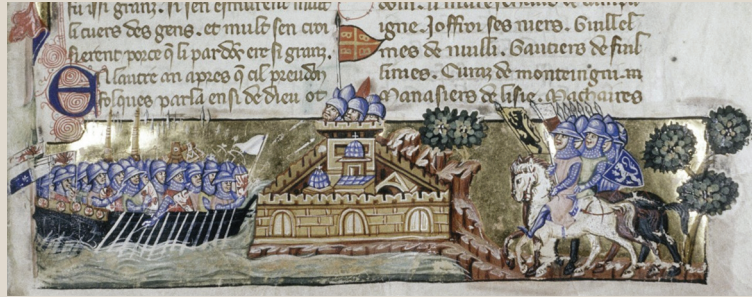 fu issi granz. Si sen esmurent mult
li cuers des gens. et mult sen croi
sierent porce q̃ li pardõs ere si granz.
En lautre an apres q̃ cil preudõ
folques parla ensi de dieu ot
igne. Joffroi ses niers. Guillel
mes de nuilli. Gautiers de fuil
limes. Euraz de monteingni. m
Manasiers de lisle. Machaires